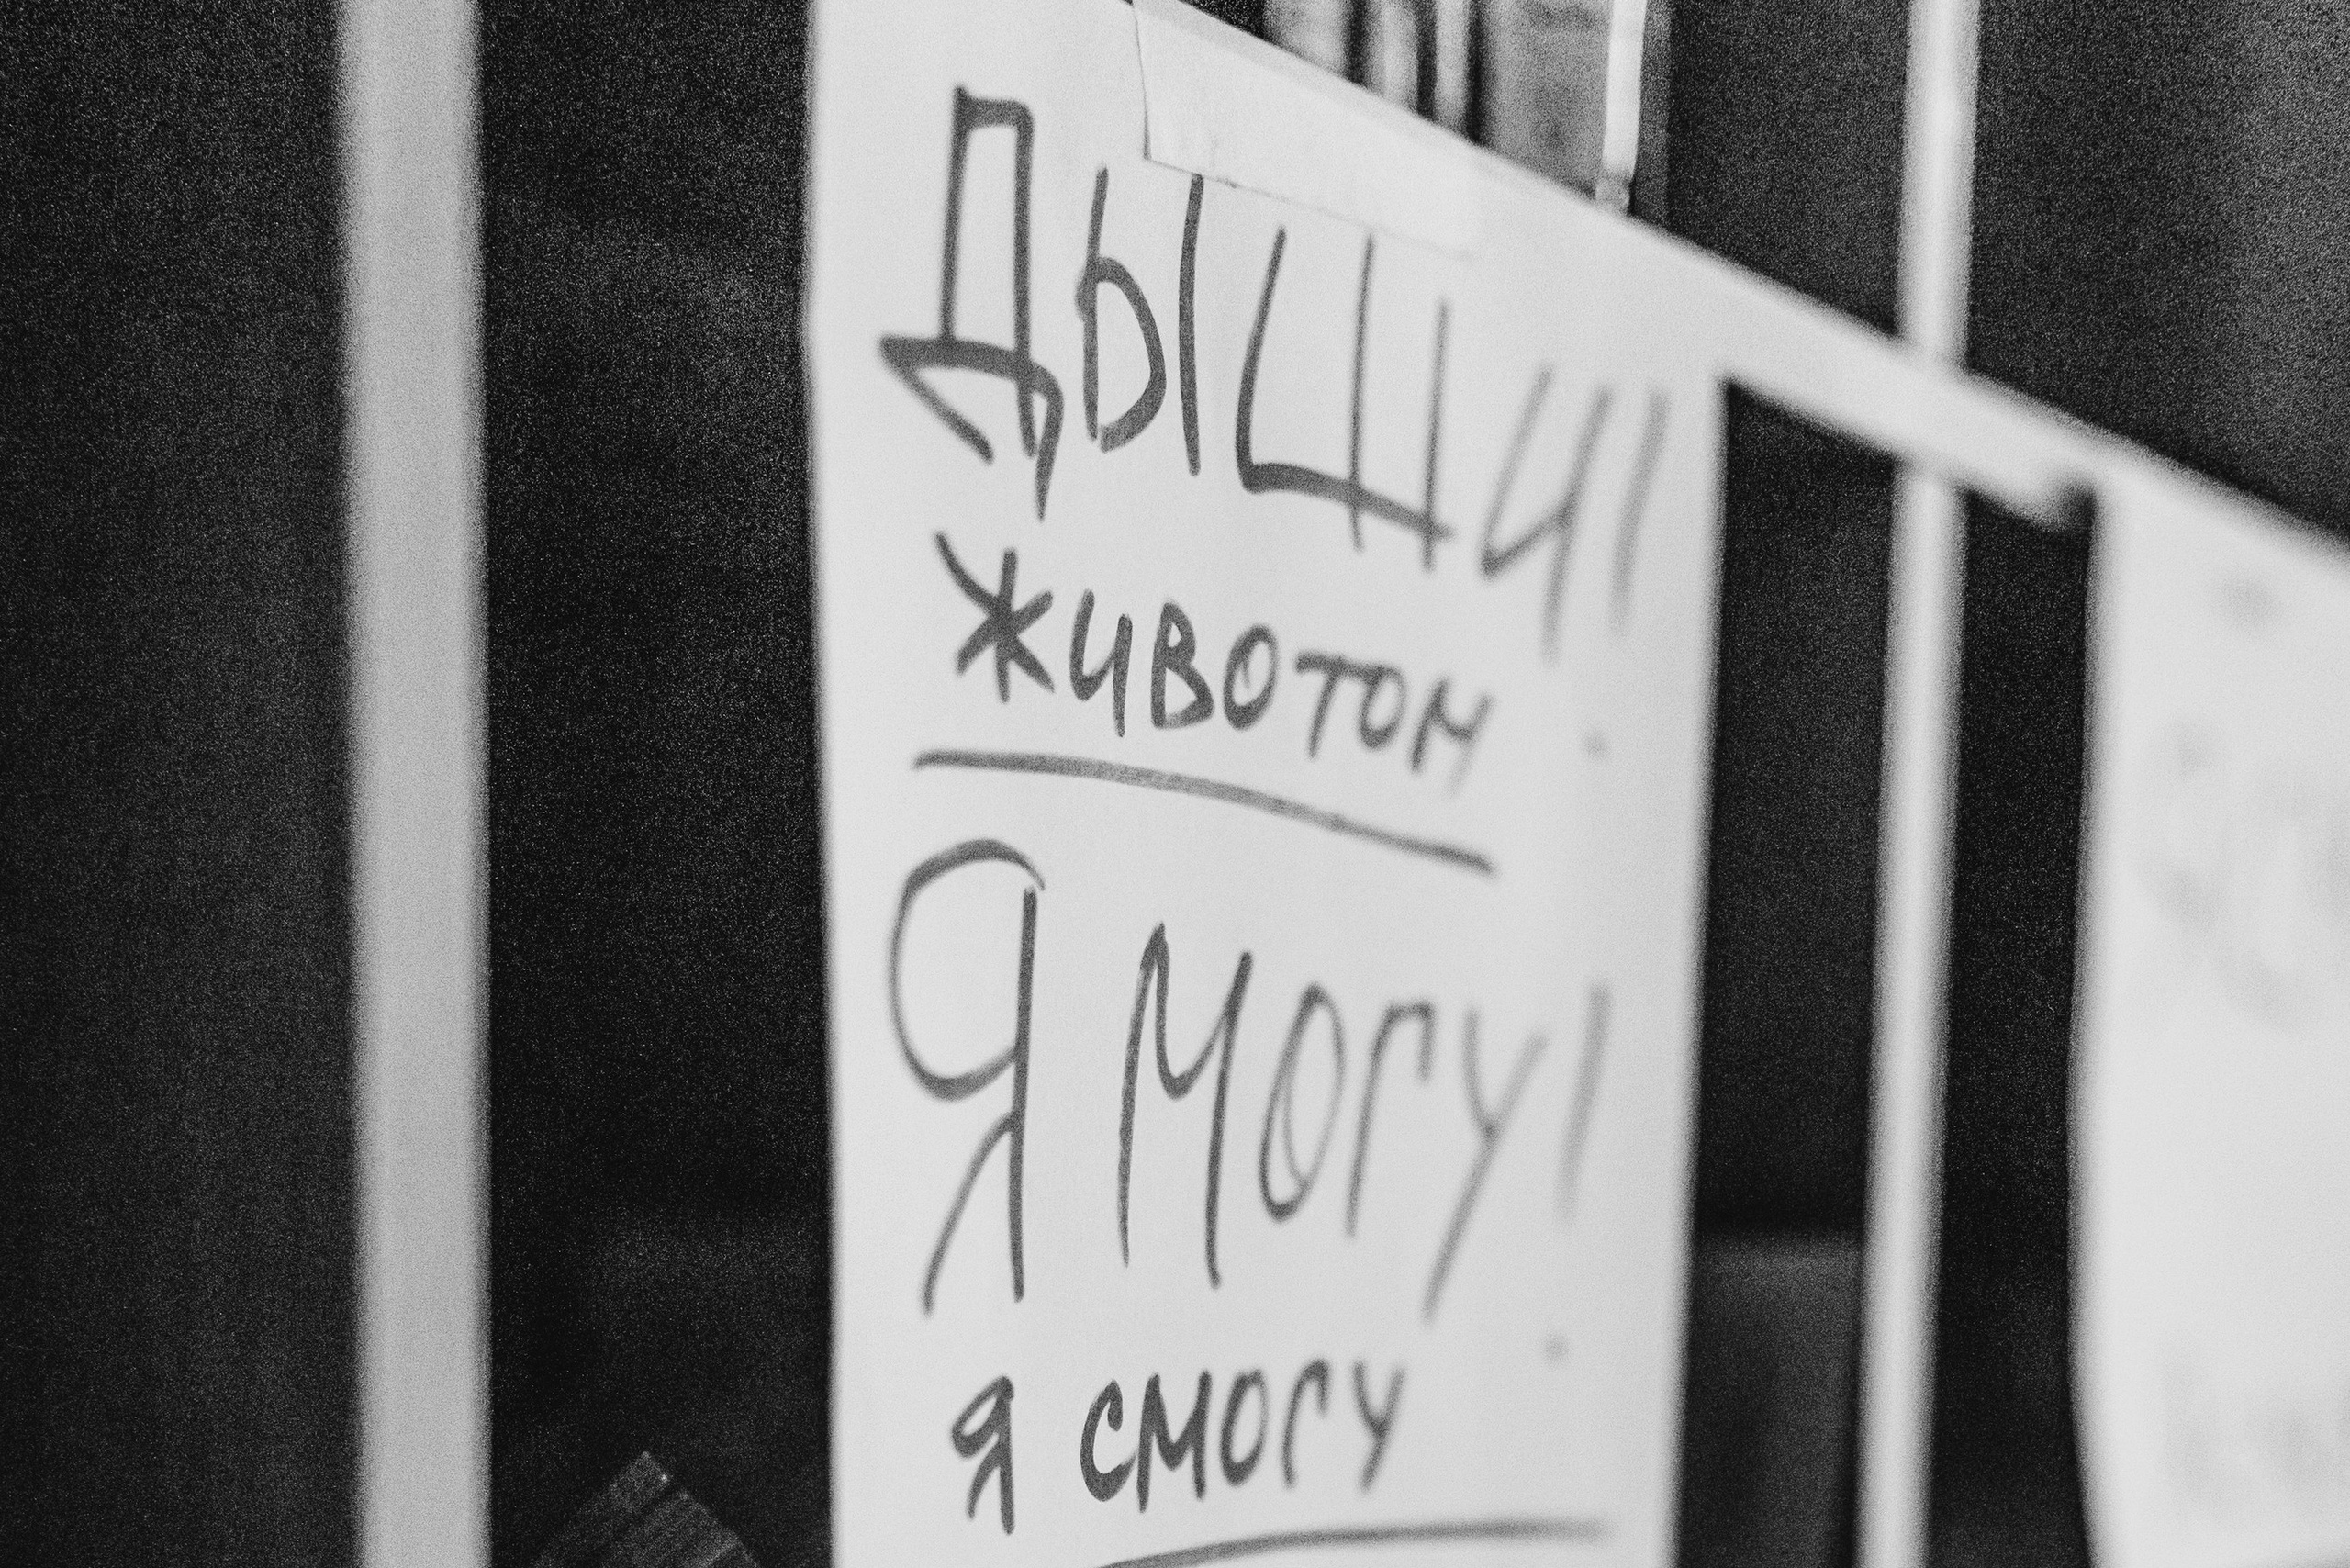 ДЫШИ!
животом
Я МОГУ!
я смогу